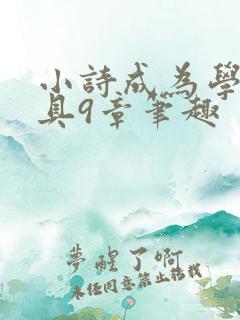 小詩成為學
具9章筆趣
夢醒了啊
未经同意禁止转载